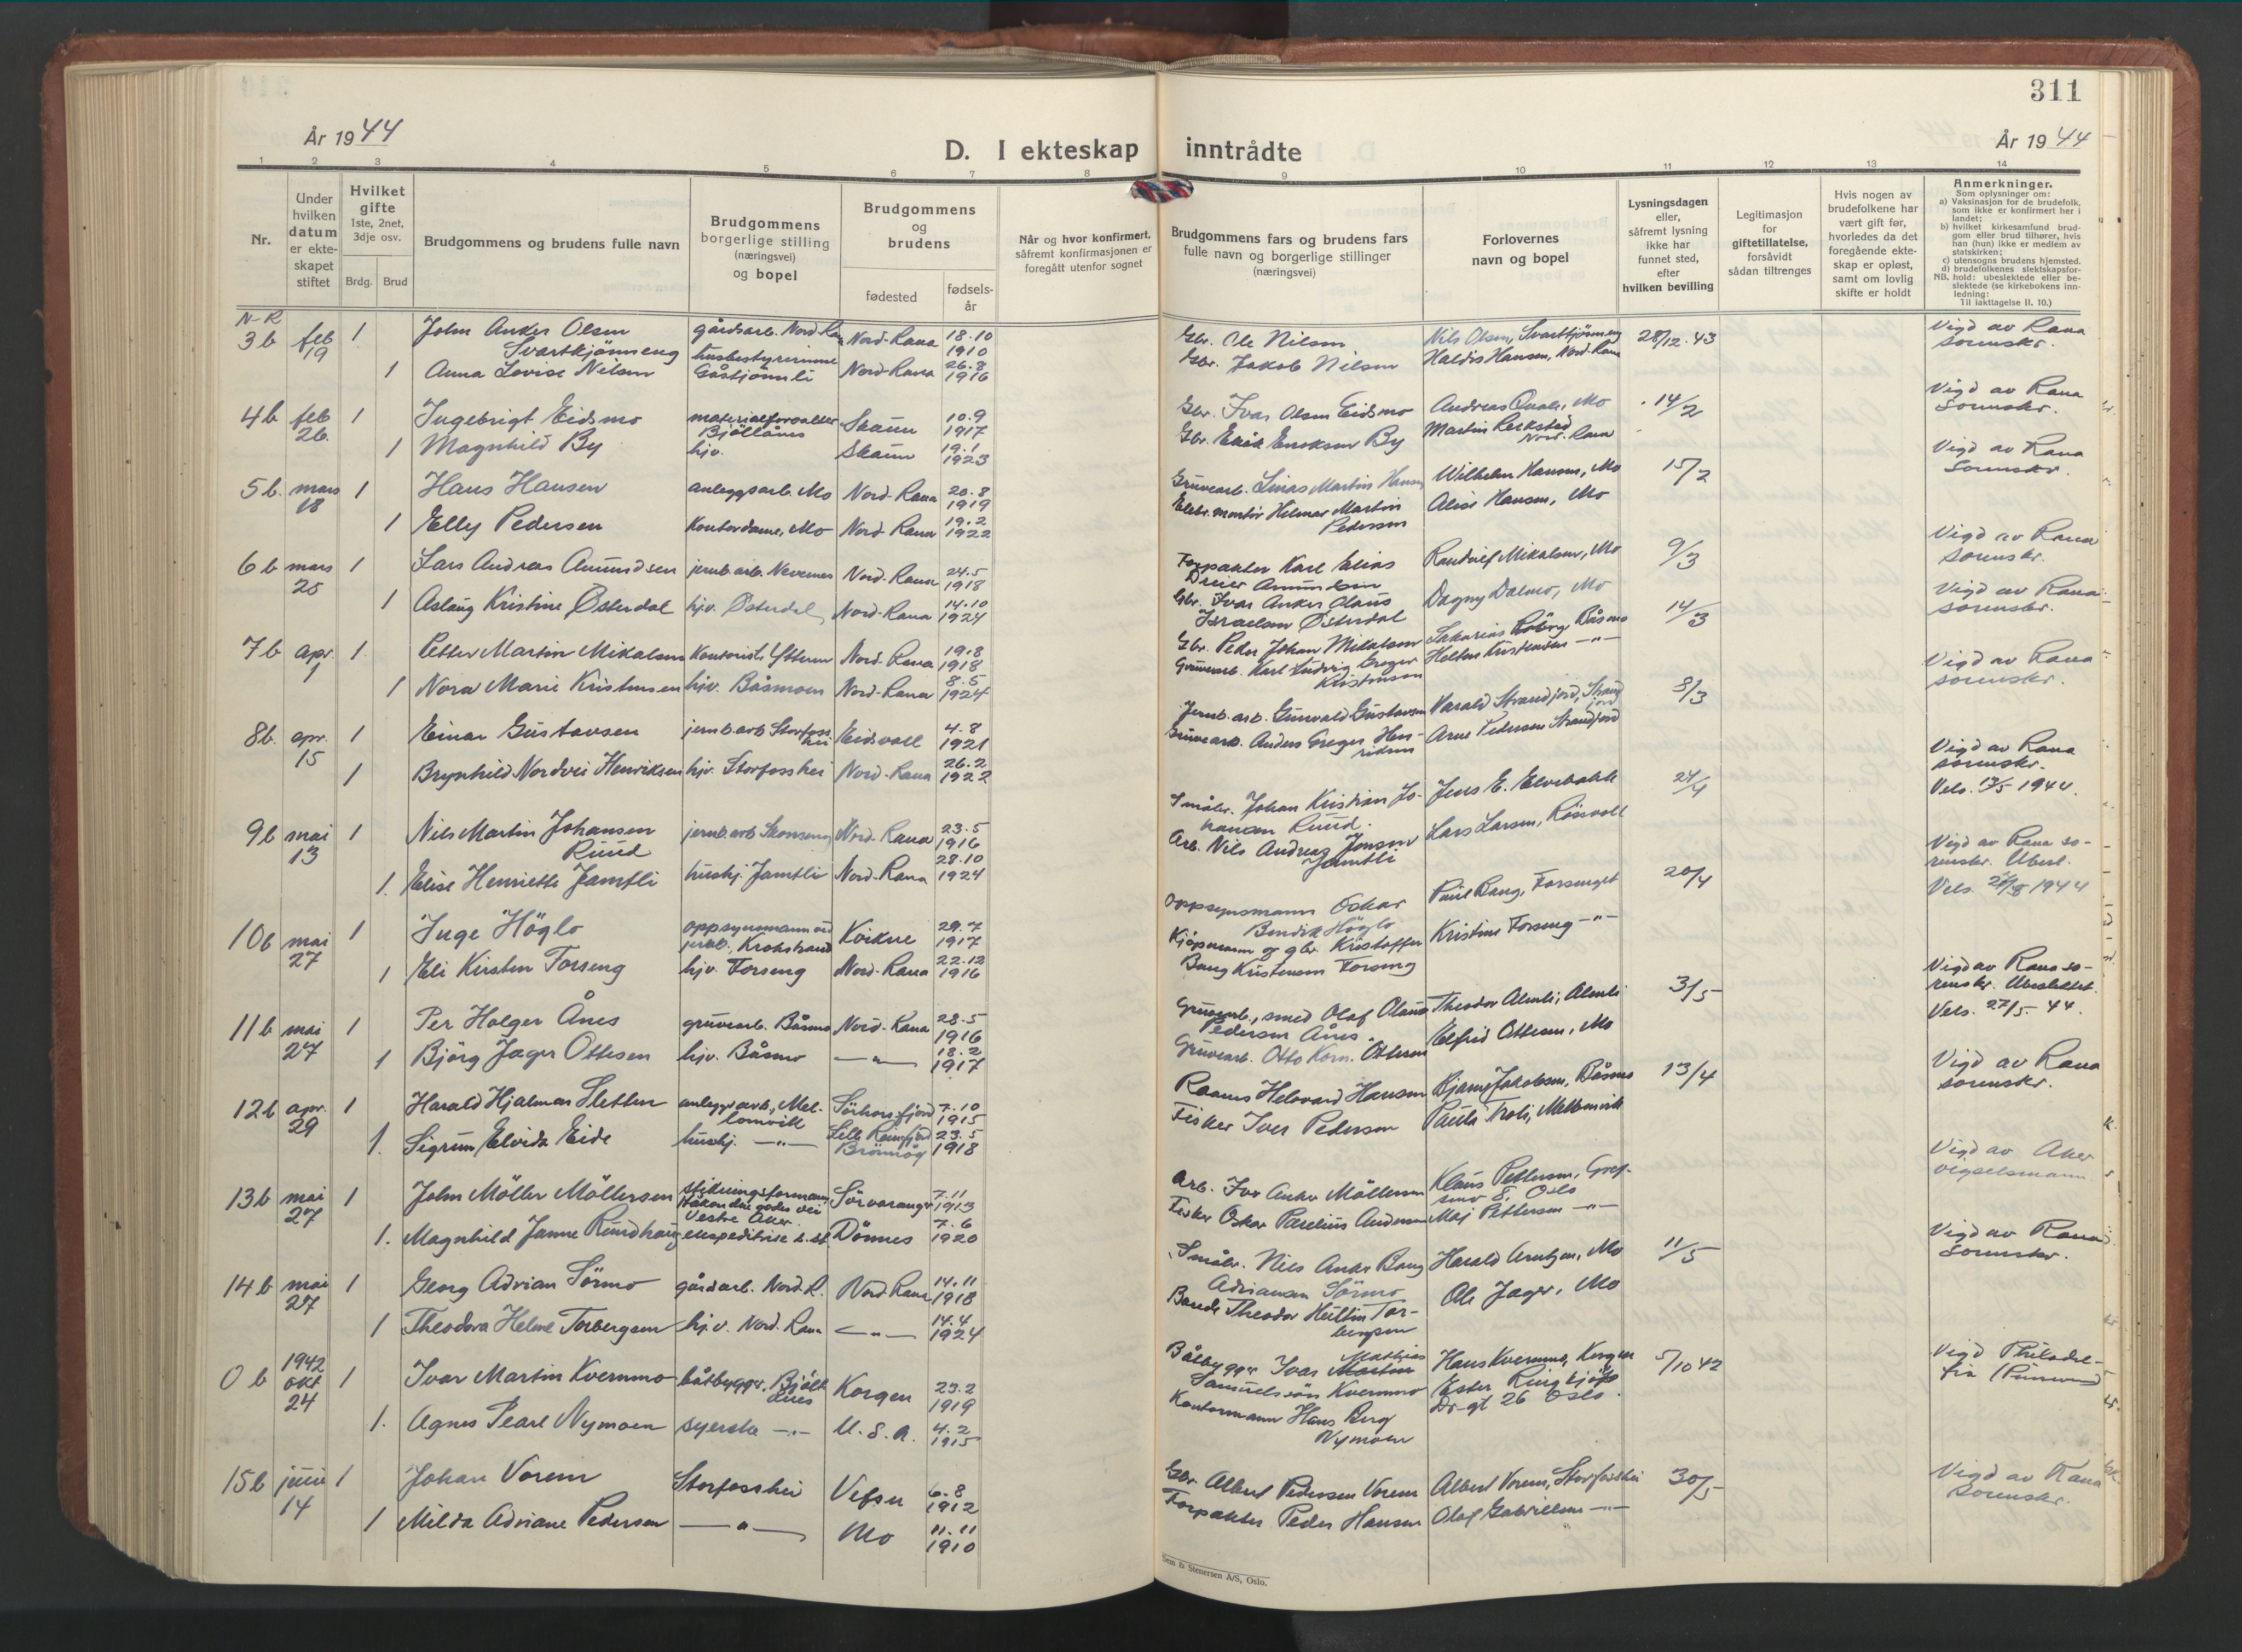 311
År 1944
D. I ekteskap inntrådte
År 1944
1 2 3 4 5 6 7 8 9 10 11 12 13 14
Nr.
Under hvilken datum er ekteskapet stiftet
Hvilket gifte
1ste, 2net, 3dje osv.
Brdg. Brud
Brudgommens og brudens fulle navn
Brudgommens borgerlige stilling (næringsvei) og bopel
Brudgommens og brudens
fødested
fødselsår
Når og hvor konfirmert, såfremt konfirmasjonen er foregått utenfor sognet
Brudgommens fars og brudens fars fulle navn og borgerlige stillinger (næringsvei)
Forlovernes navn og bopel
Lysningsdagen eller, såfremt lysning ikke har funnet sted, efter hvilken bevilling
Legitimasjon for giftetillatelse, forsåvidt sådan tiltrenges
Hvis nogen av brudefolkene har vært gift før, hvorledes da det foregående ekteskap er opløst, samt om lovlig skifte er holdt
Anmerkninger.
Som oplysninger om:
a) Vaksinasjon for de brudefolk, som ikke er konfirmert her i landet;
b) hvilket kirkesamfund brudgom eller brud tilhører, hvis han (hun) ikke er medlem av statskirken;
c) utensogns brudens hjemsted.
d) brudefolkenes slektskapsforhold: ubeslektede eller beslektede (se kirkebokens innledning:
NB. Til iakttagelse II. 10.)
N-R
3b feb 19 1 John Anker Olsen Svartkjønneng gårdsarb. Nord-Rana Nord-Rana 18.10 1910 Gbr. Ole Nilsen Nils Olsen, Svarttjønneng 28/12.43 Vigd av Rana sorenskr.
1 Anna Lovise Nilsen husbestyrerinne Gåstjønnli Nord-Rana 26.8 1916 Gbr. Jakob Nilsen Haldis Hansen, Nord-Rana
4b feb 26 1 Ingebrigt Eidsmo materialforvalter Bjöllånes Skaun 10.9 1917 Gbr. Ivar Olsen Eidsmo Andreas Qvale, Mo 14/2 Vigd av Rana Sorenskr.
1 Magnhild By hjv. Skaun 19.1 1923 Gbr. Erik Eriksen By Martin Nord. Rana
5b mars 18 1 Hans Hansen anleggsarb. Mo Nord-Rana 20.8 1919 Gruvearb. Martin Hansen Wilhelm Hansen, Mo 15/2 Vigd av Rana Sorenskr.
1 Elly Pedersen Kontordame, Mo Nord-Rana 19.2 1922 Elektr. montör Helmer Martin Pedersen Alise Hansen, Mo
6b mars 25 1 Lars Andreas Amundsen jernb.arb. Nevernes Nord-Rana 24.5 1918 Forpakter Karl Elias Dreier Amundsen Randulf Mikalsen, Mo 9/3 Vigd av Rana sorenskr.
1 Aslaug Kristine Østerdal hjv. Østerdal Nord-Rana 14.10 1924 Gbr. Ivar Anker Olaus Israelsen Østerdal Dagny Dalmo, Mo
7b apr. 1 1 Petter Martin Mikalsen Kontorist, Ytteren Nord-Rana 19.8 1918 Gbr. Peder Johan Mikalsen Sakarias Båsmo 14/3 Vigd av Rana sorenskr.
1 Nora Marie Kristensen hjv. Båsmoen Nord-Rana 8.5 1924 Gruvearb. Karl Ludvig Greger Kristensen Kristensen -"-
8b apr. 15 1 Einar Gustavsen jernb.arb Storfosshei Eidsvoll 4.8 1921 Jernb.arb. Gunvald Gustavsen Harald Strandjord, Strandjord 8/3 Vigd av Rana sorenskr.
1 Brynhild Nordvei Henriksen hjv. Storfosshei Nord-Rana 26.2 1922 Gruvearb. Anders Greger Henriksen Arne Pedersen Strandjord
9b mai 13 1 Nils Martin Johansen Ruud jernb.arb Skonseng Nord-Rana 23.5 1916 Småbr. Johan Kristian Johansen Ruud. Jens E. Elvebakk 24/4 Vigd av Rana sorenskr. Vels. 13/5 1944.
1. Elise Henriette Jamtli hushj. Jamtli Nord-Rana 28.10 1924 Arb. Nils Andreas Jonsen Jamtli Lars Larsen, Røsvoll
10b mai 27 1 Inge Höglo oppsynsmann ved jernb. Krokstrand Kvikne 29.7 1917 Oppsynsmann Oskar Bendik Höglo Paul Bang, Forsenget 20/4 Vigd av Rana sorenskr. Ubesl. Vels. 1944
1 Eli Kirsten Forseng hjv. Forseng Nord-Rana 22.12 1916 Kjøpmann og gbr. Kristoffer Bang Kristensen Forseng Kristine Forseng -"-
11b mai 27 1 Per Holger Ånes gruvearb. Båsmo Nord-Rana 28.5 1916 Gruvearb., smed Olaf Olaus Pedersen Ånes. Theodor Almli, Almli 3/5 Vigd av Rana sorenskr. Ubeslektet. Vels. 27/5. 44.
1 Björg Jager Ottesen hjv. Båsmo -"- 18.2 1917 Gruvearb. Otto Korn. Ottesen Elfrid Ottesen, Mo
12b apr. 29 1 Harald Hjalmar Sletten anleggsarb., Mellomvik Sörhorsfjord 7.10 1915 Hansen Bjarne Jakobsen, Båsmo 13/4 Vigd av Rana sorenskr.
1. Sigrun Elvida Eide hushj. -"- Lille Brönnöy 23.5 1918 Fisker Iver Pedersen Paula Mellomvik
13b mai 27 1 John Möller Möllersen stikningsformann Håkon den godes vei Vestre Aker. Sörvaranger 7.11 1913 Arb. Möllersen Klaus Pettersen, Oslo Vigd av Aker vigselsmann
1. Magnhild Janne Rundhaug ekspeditrise s.st. Dönnes 7.6 1920 Fisker Oskar Parelius Andersen Maj Pettersen -"-
14b mai 27 1 Georg Adrian Sörmo gårdarb. Nord. R. Nord Rana 14.11 1918 Småbr. Nils Anker Bang Adriansen Sörmo Harald Arntzen, Mo 11/5 Vigd av Rana Sorenskr.
1 Theodora Helene Torbergsen hj.v. Nord. Rana -"- 14.4 1924 Bonde Theodor Torbergsen Ole Jager, Mo
0b 1942 okt 24 1 Ivar Martin Kvernmo båtbygger, Bjöllånes Korgen 23.2 1919 Båtbygger Ivar Mathias Samuelssön Kvernmo Hans Kvernmo, Korgen 5/10 42 Vigd Philadelfia
1. Agnes Pearl Nymoen syerske -"- U.S.A. 4.2 1915 Kontormann Hans Berg Nymoen Ester 26 Oslo.
15b juni 14 1 Johan Vorem Storfosshei Vefsn 6.8 1912 Gbr. Albert Pedersen Vorem Albert Vorem, Storfosshei 30/5 Vigd av Rana Sorenskr.
1 Milda Adriane Pedersen -"- Mo 11.11 1910 Forpakter Peder Hansen Olaf Gabrielsen -"-
Sem & Stenersen A/S, Oslo.